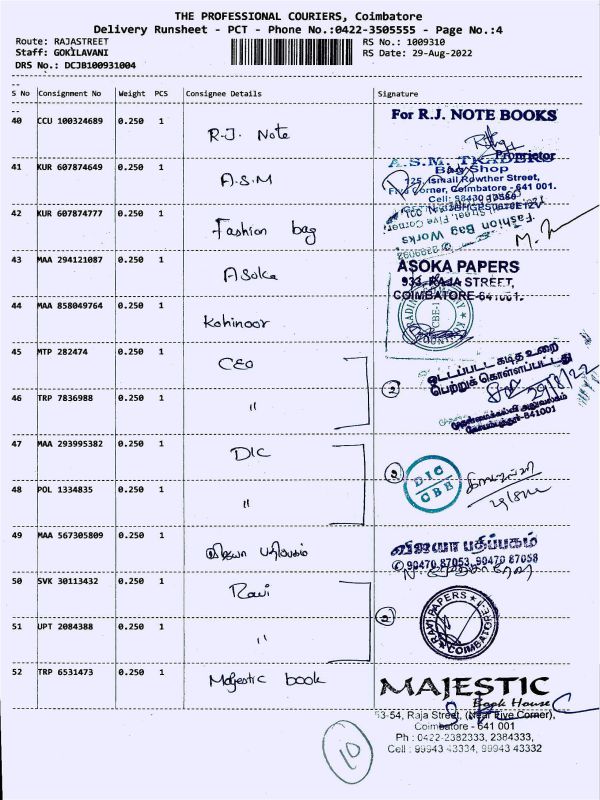 THE PROFESSIONAL COURIERS, Coimbatore
Delivery Runsheet - PCT - Phone No.:0422-3505555 - Page No.:4
Route: RAJASTREET
RS No.: 1009310
Staff: GOKILAVANI
RS Date: 29-Aug-2022
DRS No.: DCJB100931004
S No Consignment No Weight PCS Consignee Details Signature
40 CCU 100324689 0.250 1 R.J. Note
For R.J. NOTE BOOKS
Proprietor
41 KUR 607874649 0.250 1 A.S.M
A.S.M. TRADERS
Bag Shop
725, Ismail Rowther Street,
Five Corner, Coimbatore - 641 001.
42 KUR 607874777 0.250 1 Fashion bag
Fashion Bag Works
43 MAA 294121087 0.250 1 Asoka
ASOKA PAPERS
933, RAJA STREET,
COIMBATORE-641001.
44 MAA 858049764 0.250 1 Kohinoor
CBE-1
45 MTP 282474 0.250 1 CEO
ஒட்டப்பட்ட கடித உறை
பெற்றுக் கொள்ளப்பட்டது
29/8/22
46 TRP 7836988 0.250 1 "
2
47 MAA 293995382 0.250 1 DIC
DIC
CBE
48 POL 1334835 0.250 1 "
49 MAA 567305809 0.250 1 விஜயா பதிப்பகம்
விஜயா பதிப்பகம்
90470 87053, 90470 87058
50 SVK 30113432 0.250 1 Ravi
RAVI PAPERS
COIMBATORE-1
51 UPT 2084388 0.250 1 "
52 TRP 6531473 0.250 1 Majestic book
MAJESTIC
Book House
53-54, Raja Street, (Near Five Corner),
Coimbatore - 641 001
Ph : 0422-2382333, 2384333,
Cell : 99943 43334, 99943 43332
10